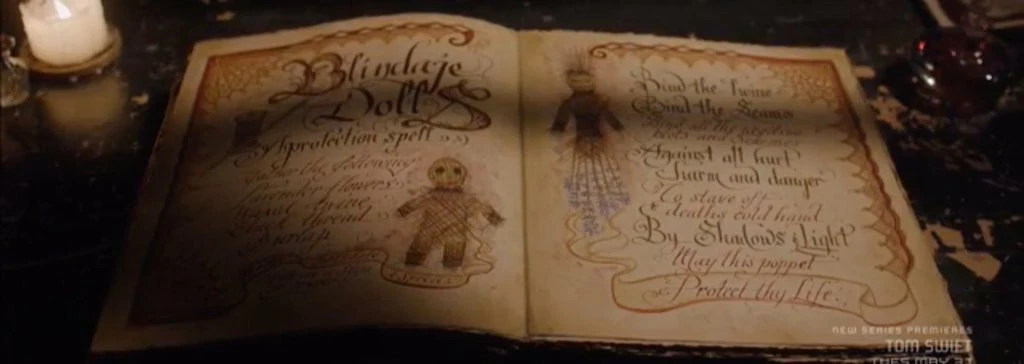 Blindaje
Dolls
A protection spell
Gather the following
Lavender flowers
thread
Burlap
Bind the Twine
Bind the Seams
Against all hurt
harm and danger
To stave off
deaths cold hand
By Shadows & Light
May this poppet
Protect thy Life
NEW SERIES PREMIERES
TOM SWIFT
TUES MAY 31